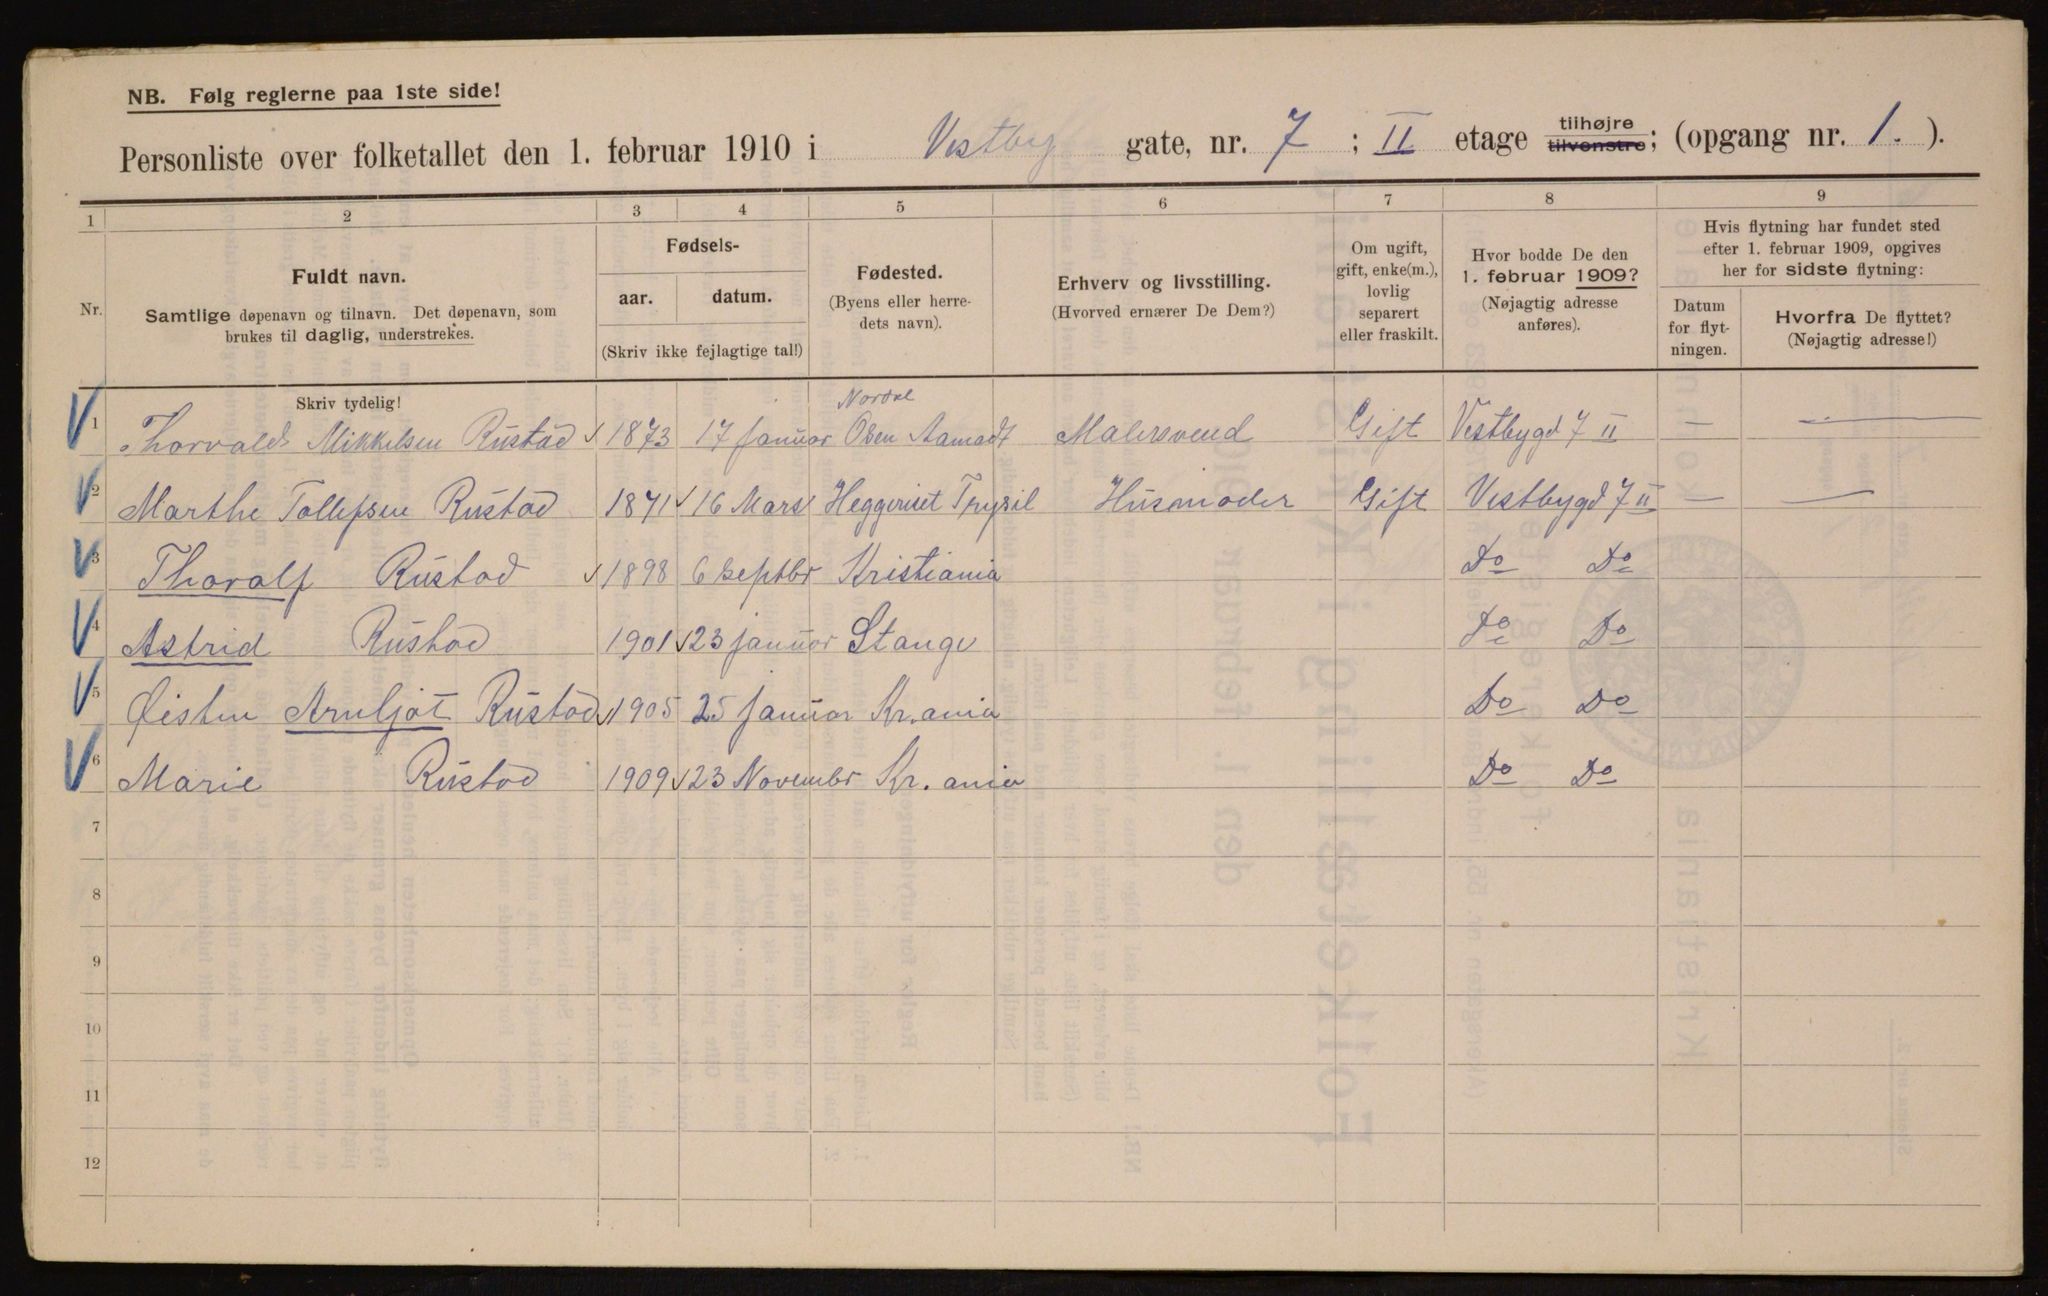 NB. Følg reglerne paa 1ste side!
Personliste over folketallet den 1. februar 1910 i Vestby gate, nr. 7 ; II etage tilhøjre tilvenstre; (opgang nr. 1. ).
1 2 3 4 5 6 7 8 9
Nr.
Fuldt navn.
Samtlige døpenavn og tilnavn. Det døpenavn, som
brukes til daglig, understrekes.
Fødsels-
aar. datum.
(Skriv ikke fejlagtige tal!)
Fødested.
(Byens eller herre-
dets navn).
Erhverv og livsstilling.
(Hvorved ernærer De Dem?)
Om ugift,
gift, enke(m.),
lovlig
separert
eller fraskilt.
Hvor bodde De den
1. februar 1909?
(Nøjagtig adresse
anføres).
Hvis flytning har fundet sted
efter 1. februar 1909, opgives
her for sidste flytning:
Datum
for flyt-
ningen.
Hvorfra De flyttet?
(Nøjagtig adresse!)
Skriv tydelig!
1 Thorvald Mikkelsen Rustad 1873 17 Januar Nordre Osen Aamodt Malersvend Gift Vestbygd 7 II — —
2 Marthe Tollefsen Rustad 1871 16 Mars Heggeriset Trysil Husmoder Gift Vestbygd 7 II — —
3 Thoralf Rustad 1898 6 Septbr Kristiania Do Do
4 Astrid Rustad 1901 23 Januar Stange Do Do
5 Øisten Arnljot Rustad 1905 25 Januar Kr.ania Do Do
6 Marie Rustad 1909 23 Novembr Kr.ania Do Do
7
8
9
10
11
12